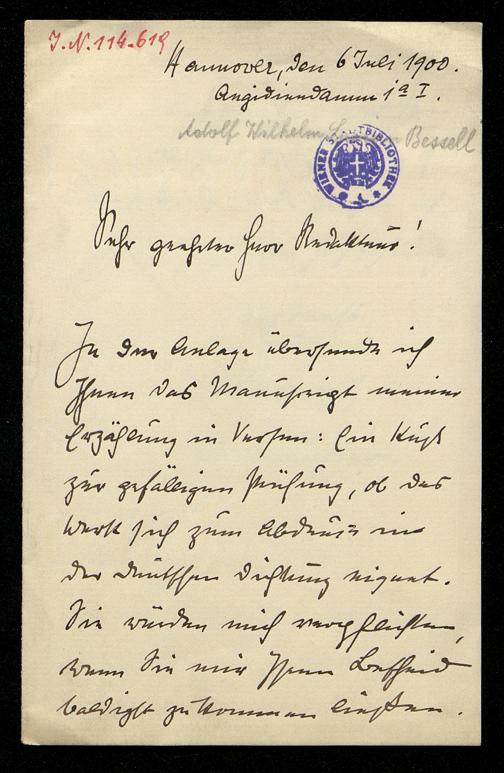 J.N. 114.619
Hannover, den 6 Juli 1900.
Aegidiendamm 1ª I.
Adolf Wilhelm Bessell
WIENER STADTBIBLIOTHEK
Sehr geehrter Herr Redakteur!
In der Anlage übersende ich
Ihnen das Manuskript meiner
Erzählung in Versen: Ein Kuß
zur gefälligen Prüfung, ob das
Werk sich zum Abdruck in
der Deutschen Dichtung eignet.
Sie würden mich verpflichten,
wenn Sie mir Ihren Bescheid
baldigst zukommen ließen.